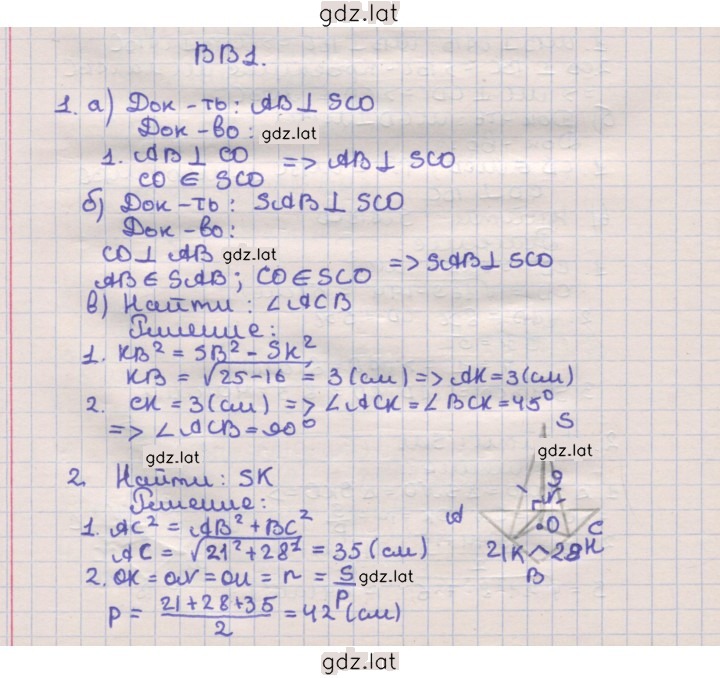 gdz.lat
ВВ1.
1. а) Док-ть: AB ⊥ SCO
Док-во: gdz.lat
1. AB ⊥ CO => AB ⊥ SCO
CO ∈ SCO
б) Док-ть: SAB ⊥ SCO
Док-во:
CO ⊥ AB gdz.lat => SAB ⊥ SCO
AB ∈ SAB; CO ∈ SCO
в) Найти: ∠ACB
Решение:
1. KB² = SB² - SK²
KB = √25-16 = 3 (см) => AK = 3 (см)
2. CK = 3 (см) => ∠ACK = ∠BCK = 45°
=> ∠ACB = 90°
gdz.lat
2. Найти: SK
Решение:
1. AC² = AB² + BC²
AC = √21² + 28² = 35 (см)
2. OK = ON = OM = r = S/P gdz.lat
P = (21+28+35)/2 = 42 (см)
S
gdz.lat
9
A
O
C
21 K 28 H
B
gdz.lat